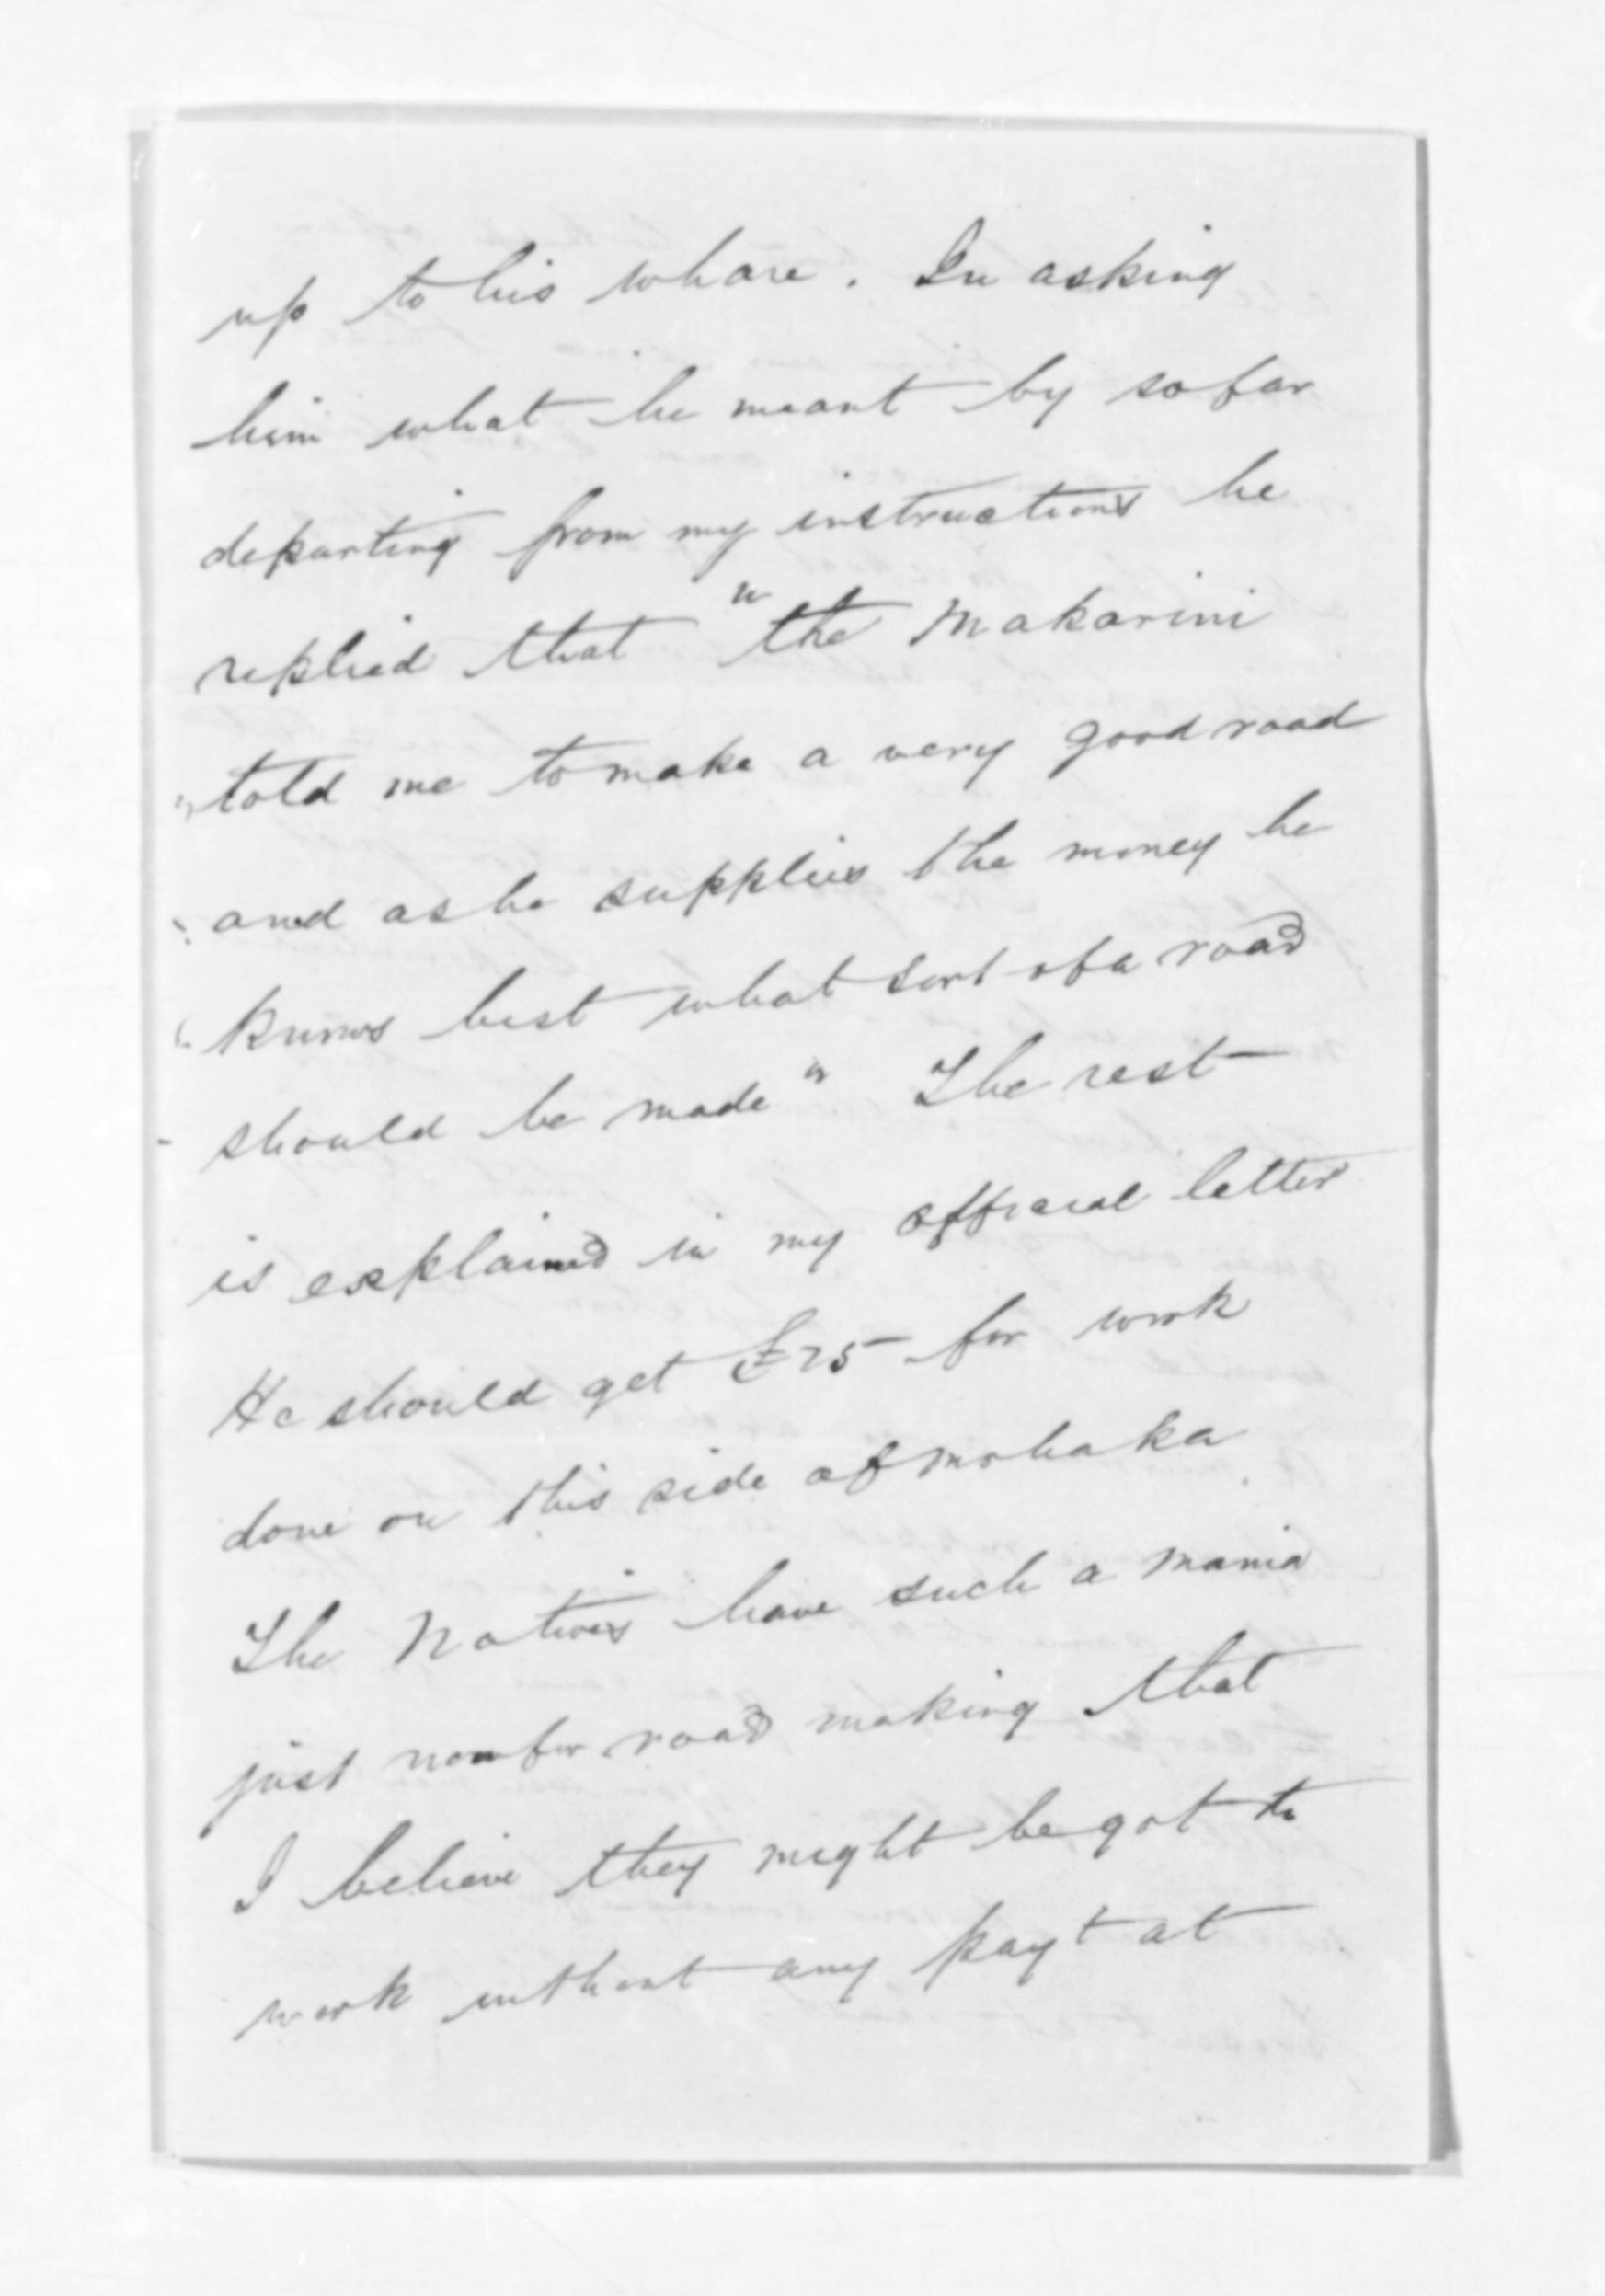 up to his whare. In asking
him what he meant by so far
departing from my instructions he
replied that "the Makarini
"told me to make a very good road
"and as he supplies the money he
"knows best what sort of a road
"should be made" The rest
is explained in my official letter
He should get £75 for work
done on this side of Mohaka
The Natives have such a mania
just now for road making that
I believe they might be got to
work without any payt at